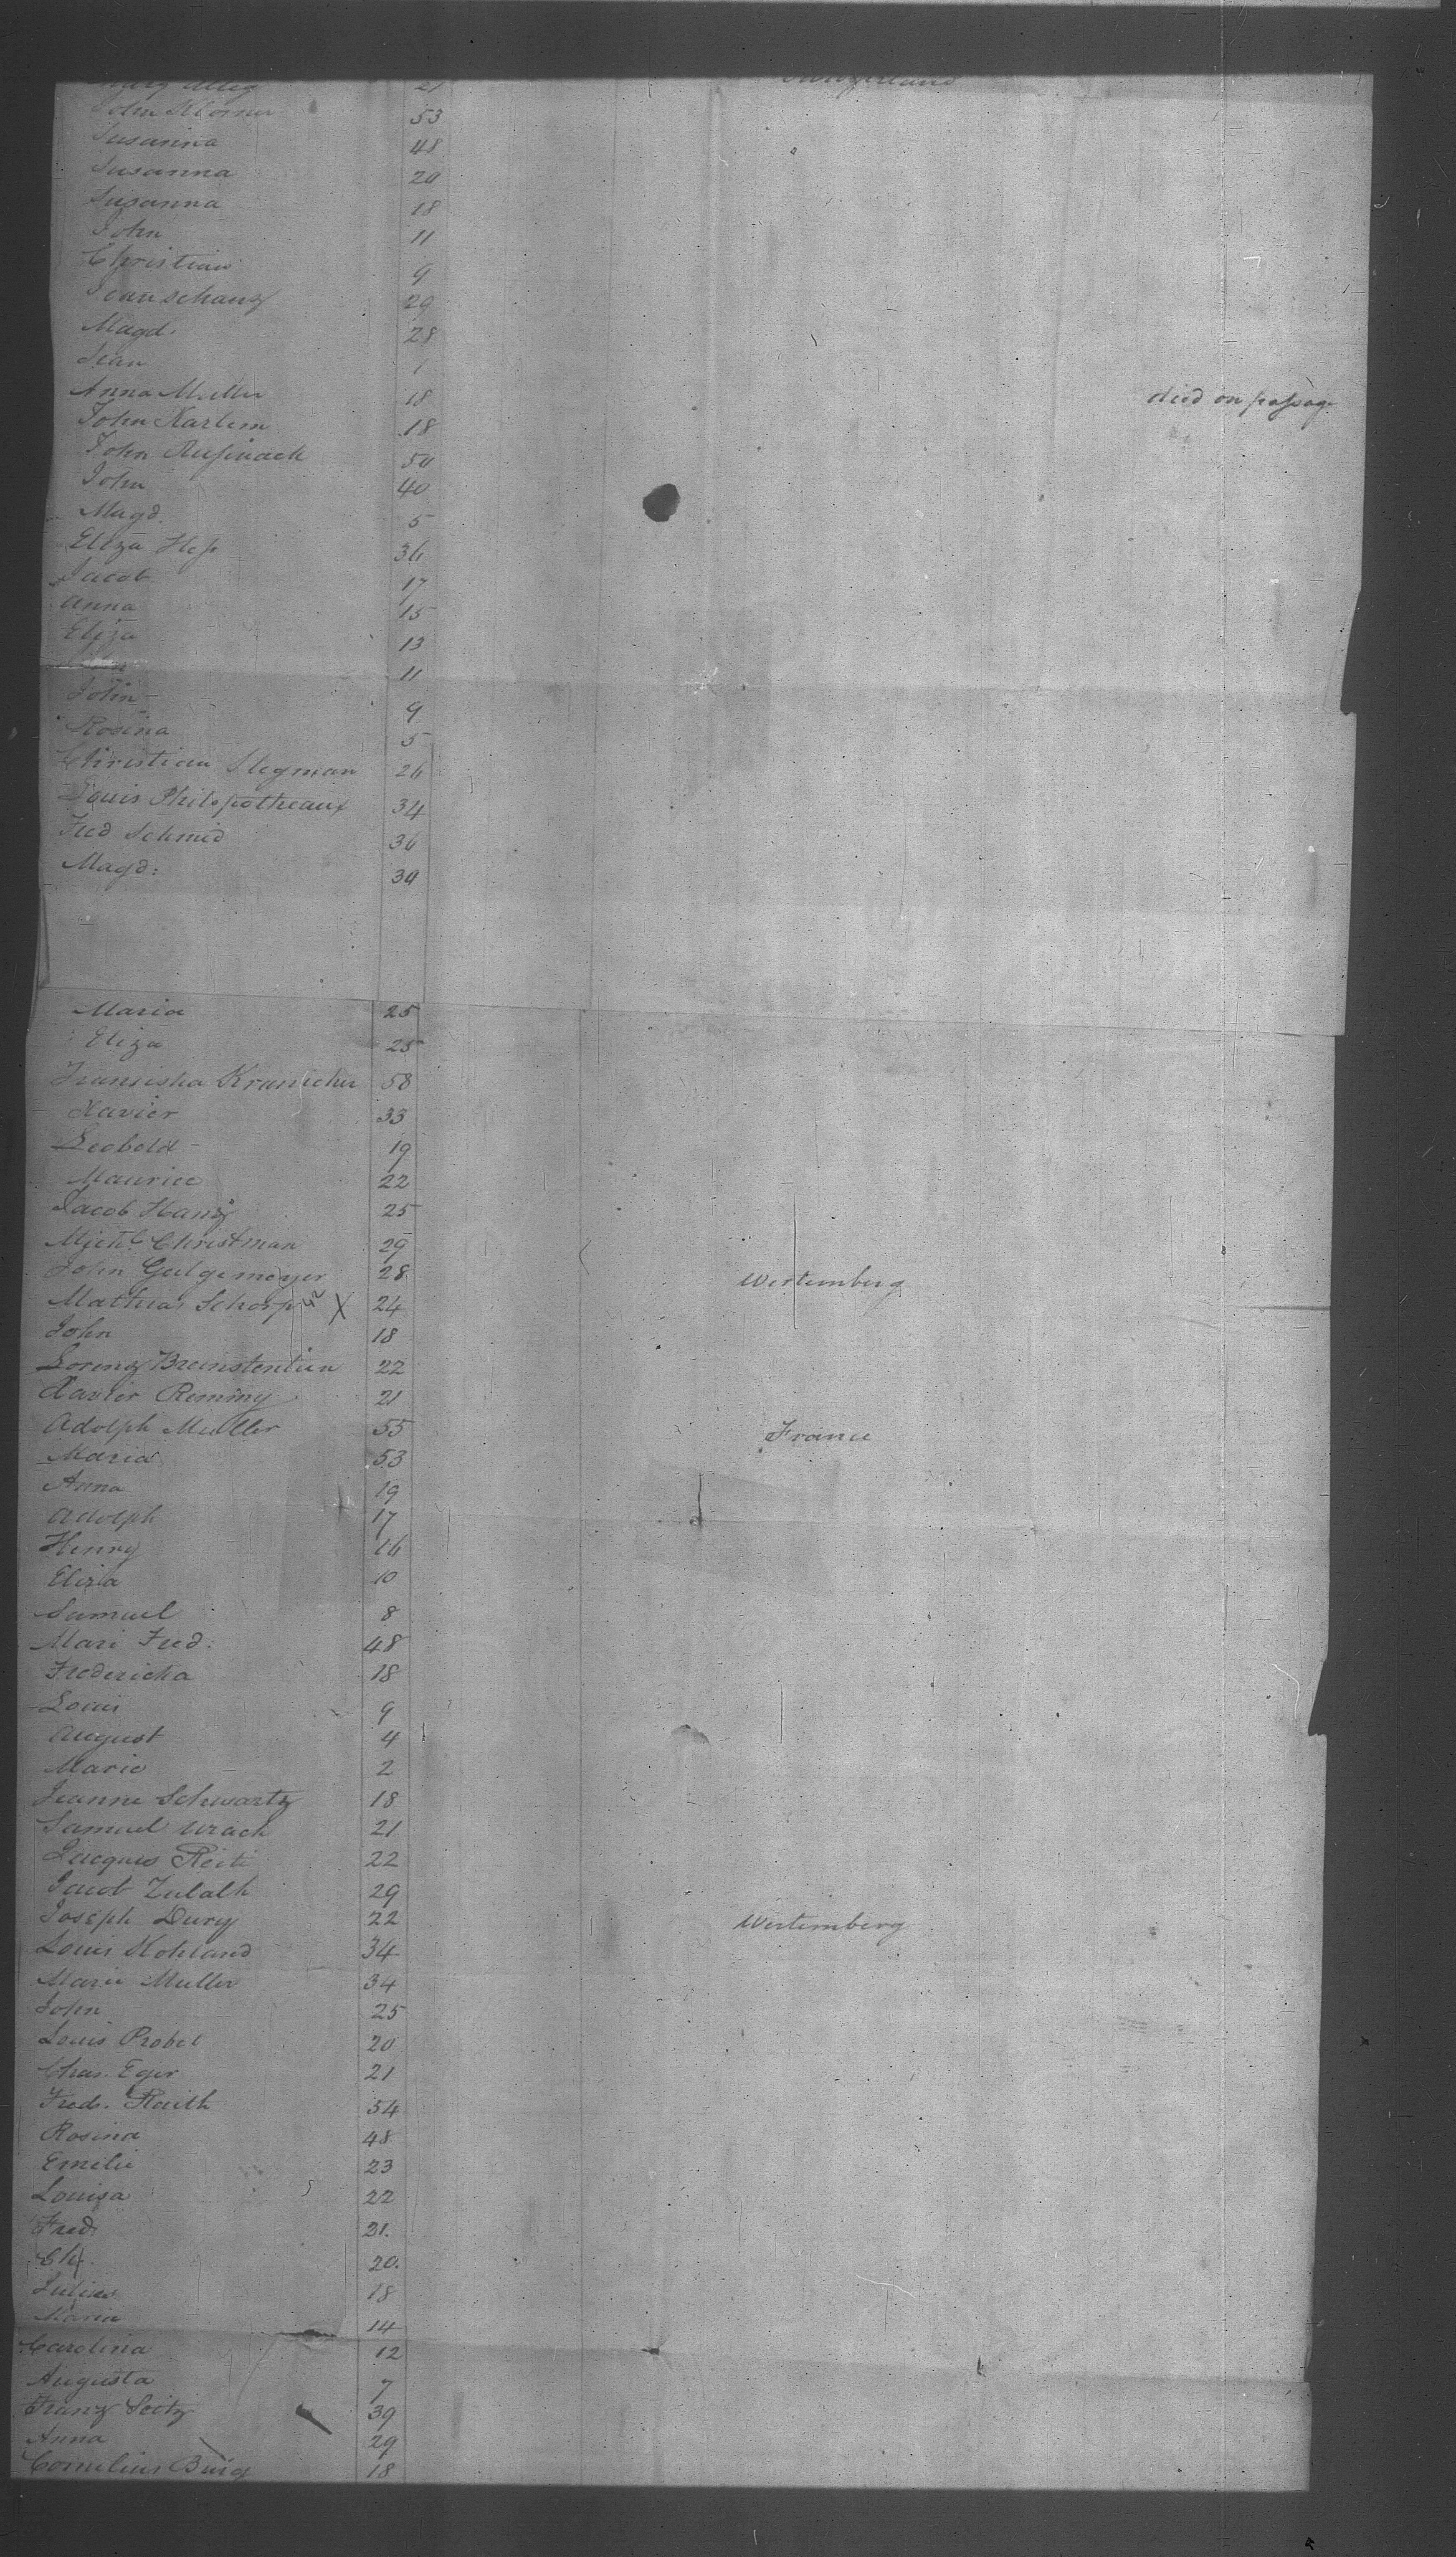 21 Switzerland
John 53
Susanna 48
Susanna 20
Susanna 18
John 11
Christian 9
Jean Schanz 29
Magd. 28
Jean 1
Anna Muller 18 died on passage
John Karlem 18
John 50
John 40
Magd. 5
Eliza Heſs 36
Jacob 17
Anna 15
Eliza 13
11
John 9
Rosina 5
Christian Slegman 26
Louis Philippotheaux 34
Fred Schmid 36
Magd: 30
Maria 25
Eliza 25
Fransiska Kranicher 58
Xavier 33
Leobold 19
Maurice 22
Jacob Hanz 25
Michl Christman 29
John Gulgemeyer 28 Wertemberg
Mathias Schorp 42 X 24
John 18
Lorenz 22
Xavier Reminy 21
Adolph Muller 55 France
Maria 53
Anna 19
Adolph 17
Henry 16
Eliza 10
Samuel 8
Mari Fred: 48
Fredericka 18
Louis 9
August 4
Marie 2
Jeanne Schwartz 18
Samuel Urach 21
Jacques Reiti 22
Jacob Zulalh 29
Joseph Dury 22 Wertemberg
Louis Kohland 34
Marie Muller 34
John 25
Louis Probel 20
Chas. Eger 21
Fredr. Raith 54
Rosina 48
Emelie 23
Louisa 22
Fred. 21.
Ch. 20.
Julius 18
Maria 14
Carolina 12
Augusta 7
Franz Seitz 39
Anna 29
Cornelius Burg 18